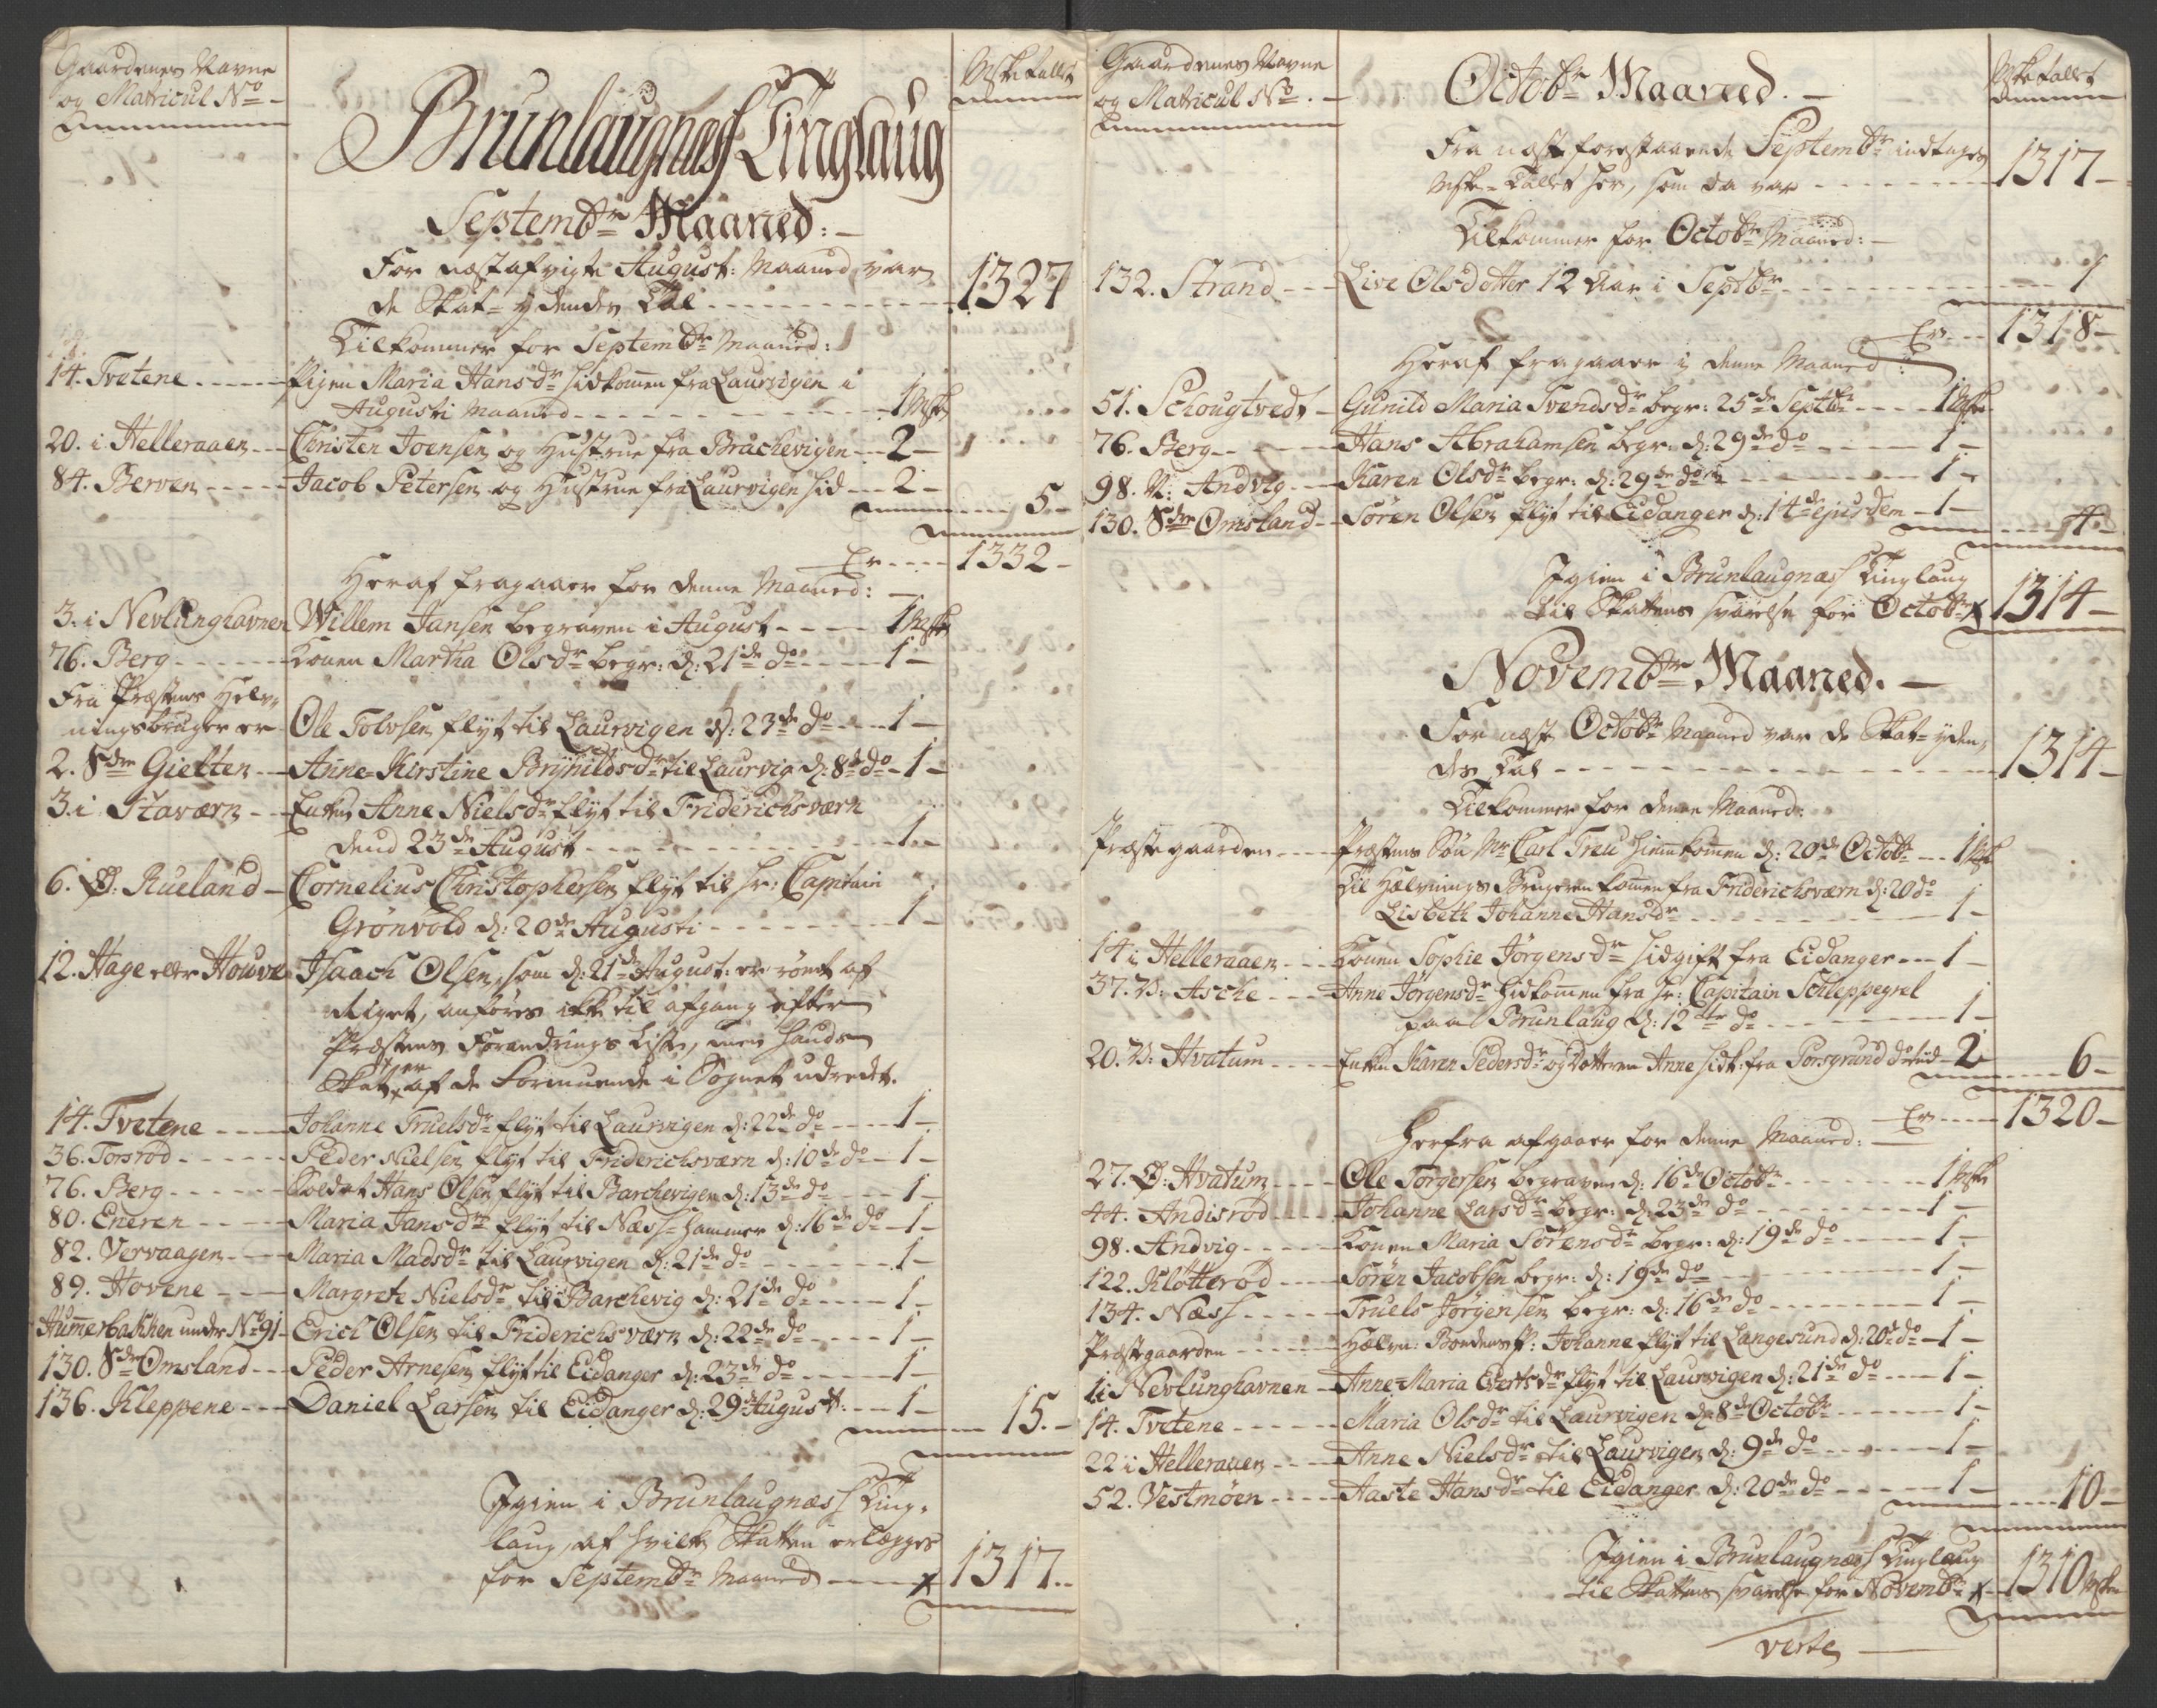 Gaardenes Navne
og Matricul No
Mske tallet
Brunlaugnæss Tinglaug
Septembr Maaned:
For næstafvigte August: Maaned var
de Skat-ydendes Tal 1327
Tilkommer for Septembr Maaned:
14. Tvetene Pigen Maria Hansdr hidkommen fra Laurvigen i
Augusti Maaned 1 Mske
20. i Helleraaen Christen Joensen og Hustrue fra Brachevigen 2
84. Berven Jacob Petersen og Hustrue fra Laurvigen hid 2
5.
Er 1332
Heraf fragaaer for denne Maaned:
3. i Nevlunghavnen Willem Jansen begraven i August 1 Mske
76. Berg Konen Martha Olsdr begr: d: 21de do 1
Fra Præstens Helv-
ningsbruger er Ole Tolvsen flyt til Laurvigen d: 23de do 1
2. Sdre Gielten Anne-Kirstine Brynildsdr til Laurvig d: 8de do 1
3. i Staværn Enken Anne Nielsdr flyt til Friderichsværn
dend 23de August 1
6. Ø: Rueland Cornelius Christophersen flyt til Hr: Capitain
Grönvold d: 20de Augusti 1
12. Hage eller Houve Isaach Olsen, som d: 21de August: er römt af
Riget, anföres ikke til afgang efter
Præstens Forandrings Liste, men hands
Skatt er af de Formuende i Sognet udredet.
14. Tvetene Johanne Truelsdr flyt til Laurvigen d: 22de do 1
36. Torsröd Peder Nielsen flyt til Friderichsværn d: 10de do 1
76. Berg Soldat Hans Olsen flyt til Barchevigen d: 13de do 1
80. Eneren Maria Jansdr flyt til Næss-hammer d: 16de do 1
82. Vervaagen Maria Madsdr til Laurvigen d: 21de do 1
89. Hovene Margrete Nielsdr til Barchevig d: 21de do 1
Hummerbakken under No 91 Erich Olsen til Friderichsværn d: 22de do 1
130. Sdre Omsland Peder Arnesen flyt til Eidanger d: 23de do 1
136. Kleppene Daniel Larsen til Eidanger d: 29de August: 1
15.
Igien i Brunlaugnæss Ting-
laug, af hvilke Skatten erlægges
for Septembr Maaned x 1317.
Gaardenes Navne
og Matricul No
Mske tallet
Octobr Maaned.
Fra næst forestaaende Septembr indtages
Mske-Tallet her, som da var 1317
Tilkommer for Octobr Maaned:
132. Strand Live Olsdotter 12 Aar i Septbr 1
Er 1318
Heraf fragaaer i denne Maaned:
51. Schougtvedt Gunild Maria Svendsdr begr: 25de Septbr 1 Mske
76. Berg Hans Abrahamsen begr: d: 29de do 1
98. N: Andvig Karen Olsdr begr: d: 29de do 1
130. Sdre Omsland Sören Olsen flyt til Eidanger d: 14de ejusdem 1
4.
Igien i Brunlaugnæss Tinglaug
til Skattens svarelse for Octobr x 1314
Novembr Maaned.
For næst Octobr Maaned var de Skat-yden-
des Tal 1314
Tilkommer for denne Maaned:
Præstegaarden Præstens Sön Mr Carl Treu hiemkommen d: 20de Octobr 1 Mske
Til Hælvnings Brugeren kommen fra Friderichsværn d: 20 do
Lisbeth Johanne Hansdr 1
14 i Helleraaen Konen Sophie Jörgensdr hidgift fra Eidanger 1
37. V: Asche Anne Jörgensdr hidkommen fra Hr: Capitain Schleppegrel
paa Brunlaug d: 12te do 1
20. V: Hvatum Enken Karen Pedersdr og Dotteren Anne hidk: fra Porsgrund do tid 2
6
Er 1320
Herfra afgaaer for denne Maaned:
27. Ø: Hvatum Ole Torgersen begraven d: 16de Octobr 1 Mske
44. Andisröd Johanne Larsdr begr: d: 23de do 1
98. Andvig Konen Maria Sörensdr begr: d: 19de do 1
122. Klötteröd Sören Jacobsen begr: d: 19de do 1
134. Næss Truels Jörgensen begr: d: 16de do 1
Præstgaarden Hælvn: Bondens P: Johanne flyt til Langesund d: 20de do 1
1 i Nevlunghavnen Anne-Maria Evertsdr flyt til Laurvigen d: 21de do 1
14. Tvetene Maria Olsdr til Laurvigen d: 8de Octobr 1
22 i Helleraaen Anne Nielsdr til Laurvigen d: 9de do 1
52. Vestmöen Aaste Hansdr til Eidanger d: 20de do 1
10
Igien i Brunlaugnæss Tinglaug
til Skattens svarelse for Novembr x 1310 Mske
verte